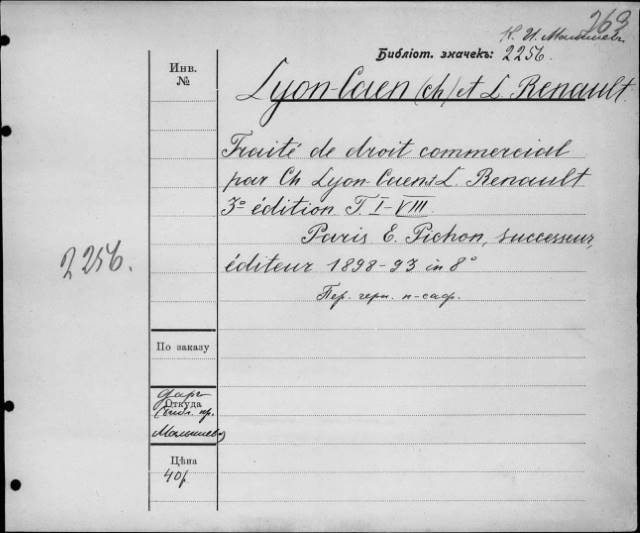 263
К. И. Малышевъ
Библіот. значекъ: 2256.
Инв. №
Lyon-Caen (Ch) et L. Renault.
Traité de droit commercial
par Ch Lyon-Caen & L. Renault
3º édition T. I-VIII.
Paris E. Pichon, successeur,
éditeur 1898-93 in 8º
2256.
Пер. черн. п-саф.
По заказу
даръ
Откуда
(библ. пр.
Малышева)
Цѣна
40р